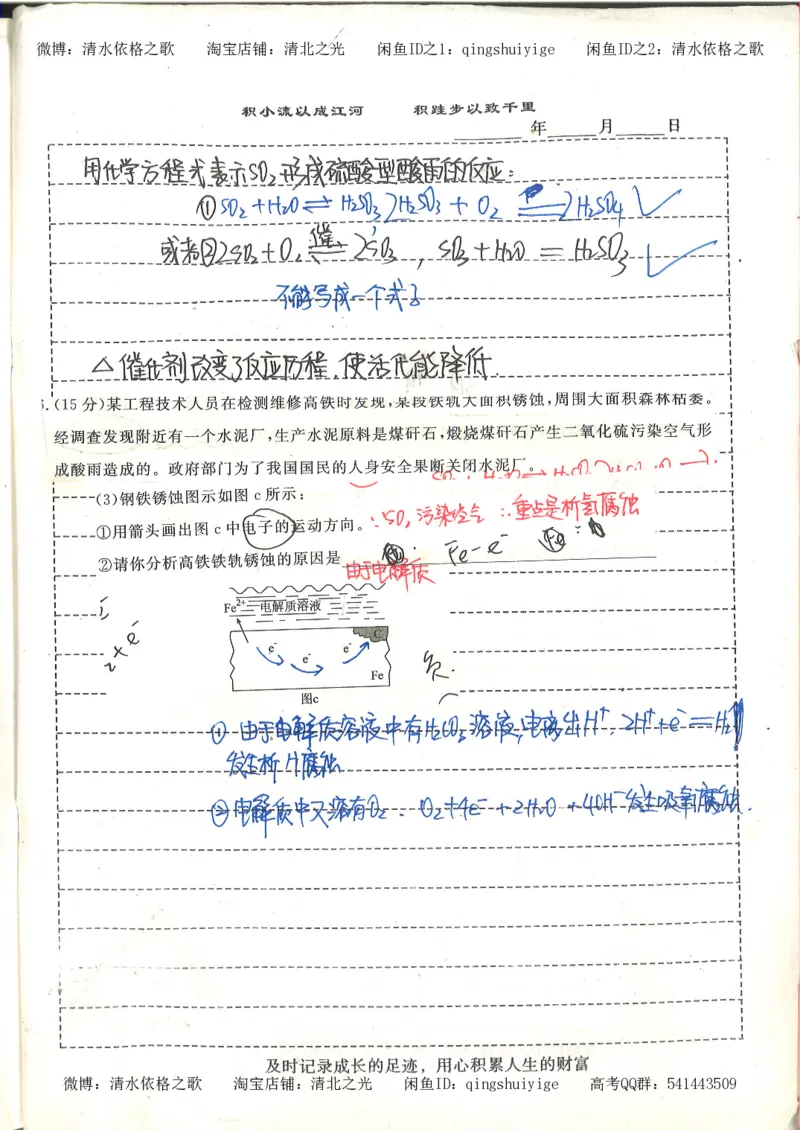 微博：清水依格之歌 淘宝店铺：清北之光 闲鱼ID之1：qingshuiyige 闲鱼ID之2：清水依格之歌
积小流以成江河 积跬步以致千里
年 月 日
用化学方程式表示SO₂形成硫酸型酸雨的反应：
①SO₂+H₂O⇌H₂SO₃ 2H₂SO₃+O₂ = 2H₂SO₄
或者②2SO₂+O₂ 催⇌ 2SO₃，SO₃+H₂O = H₂SO₃
不能写成一个式子
△催化剂改变了反应历程，使活化能降低.
.(15分)某工程技术人员在检测维修高铁时发现，某段铁轨大面积锈蚀，周围大面积森林枯萎。
经调查发现附近有一个水泥厂，生产水泥原料是煤矸石，煅烧煤矸石产生二氧化硫污染空气形
成酸雨造成的。政府部门为了我国国民的人身安全果断关闭水泥厂。
(3)钢铁锈蚀图示如图c所示：
∵SO₂污染空气 ∴重点是析氢腐蚀
①用箭头画出图c中电子的运动方向。
②请你分析高铁铁轨锈蚀的原因是
Fe-e⁻
由于电解质
Fe²⁺ 电解质溶液
C
e⁻ e⁻ e⁻
Fe
图c
2+e⁻
负.
①由于电解质溶液中有H₂CO₃溶液，电离出H⁺，2H⁺+e⁻=H₂↑
发生析H腐蚀
②电解质中又溶有O₂：O₂+4e⁻+2H₂O=4OH⁻发生吸氧腐蚀.
及时记录成长的足迹，用心积累人生的财富
微博：清水依格之歌 淘宝店铺：清北之光 闲鱼ID：qingshuiyige 高考QQ群：541443509